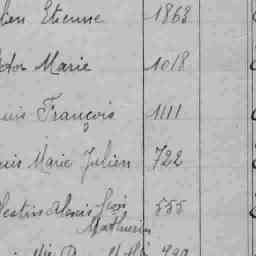 lien Etienne 1863
ctor Marie 1018
uis François 1111
uis Marie Julien 722
lestin Alexis fçois 555
Mathurin